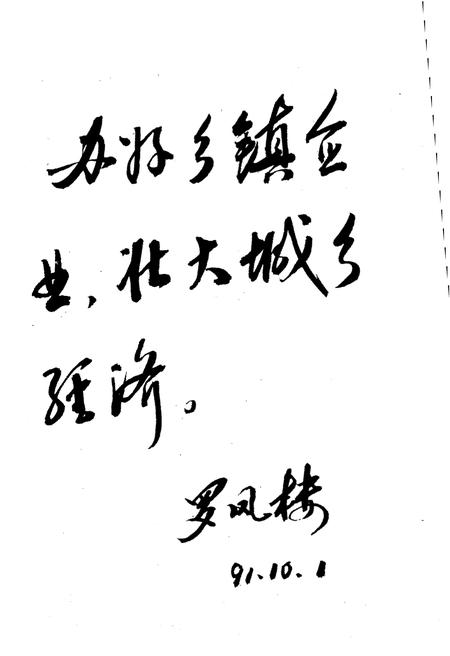 办好乡镇企
业、壮大城乡
经济。
罗凤楼
91.10.1